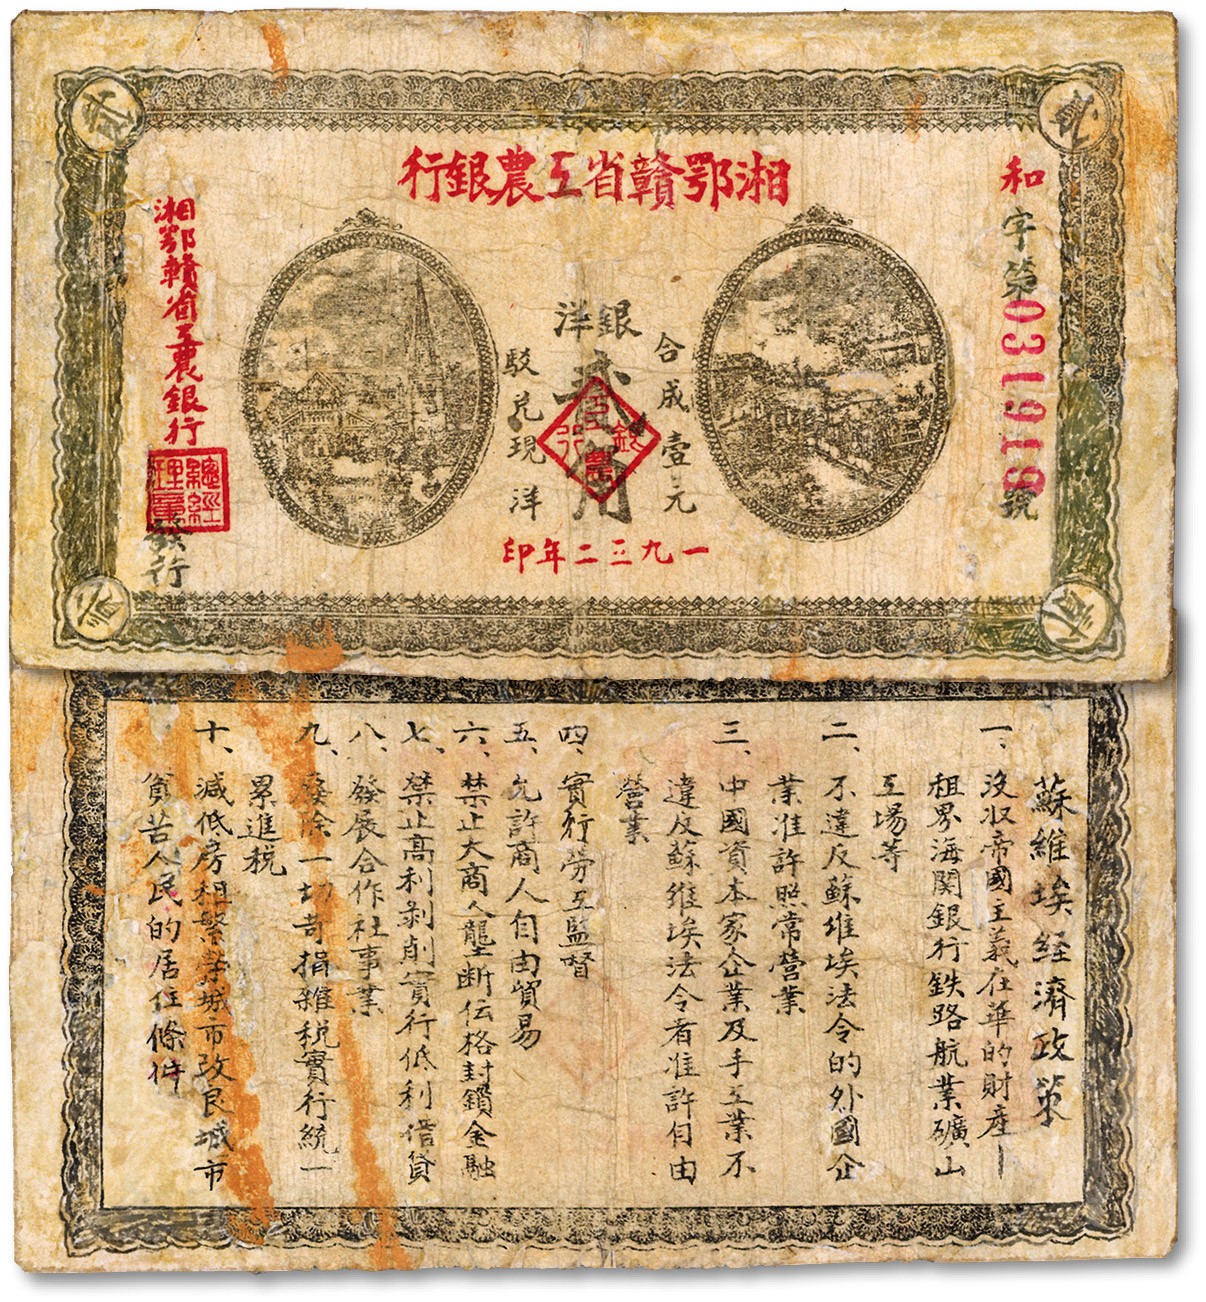 湘鄂贛省工農銀行
和字第0319189號
銀洋
貳角
合成壹元
駁兌現洋
農工銀行
一九三二年印
湘鄂贛省工農銀行
總經理章
發行
蘇維埃經濟政策
一、沒收帝國主義在華的財產—
租界海關銀行鉄路航業礦山
工場等
二、不違反蘇維埃法令的外國企
業准許照常營業
三、中國資本家企業及手工業不
違反蘇維埃法令者准許自由
營業
四、實行勞工監督
五、允許商人自由貿易
六、禁止大商人壟断伝格封鎖金融
七、禁止高利剥削實行低利借貸
八、發展合作社事業
九、廢除一切苛捐雜稅實行統一
累進稅
十、減低房租繁榮城市改良城市
貧苦人民的居住條件